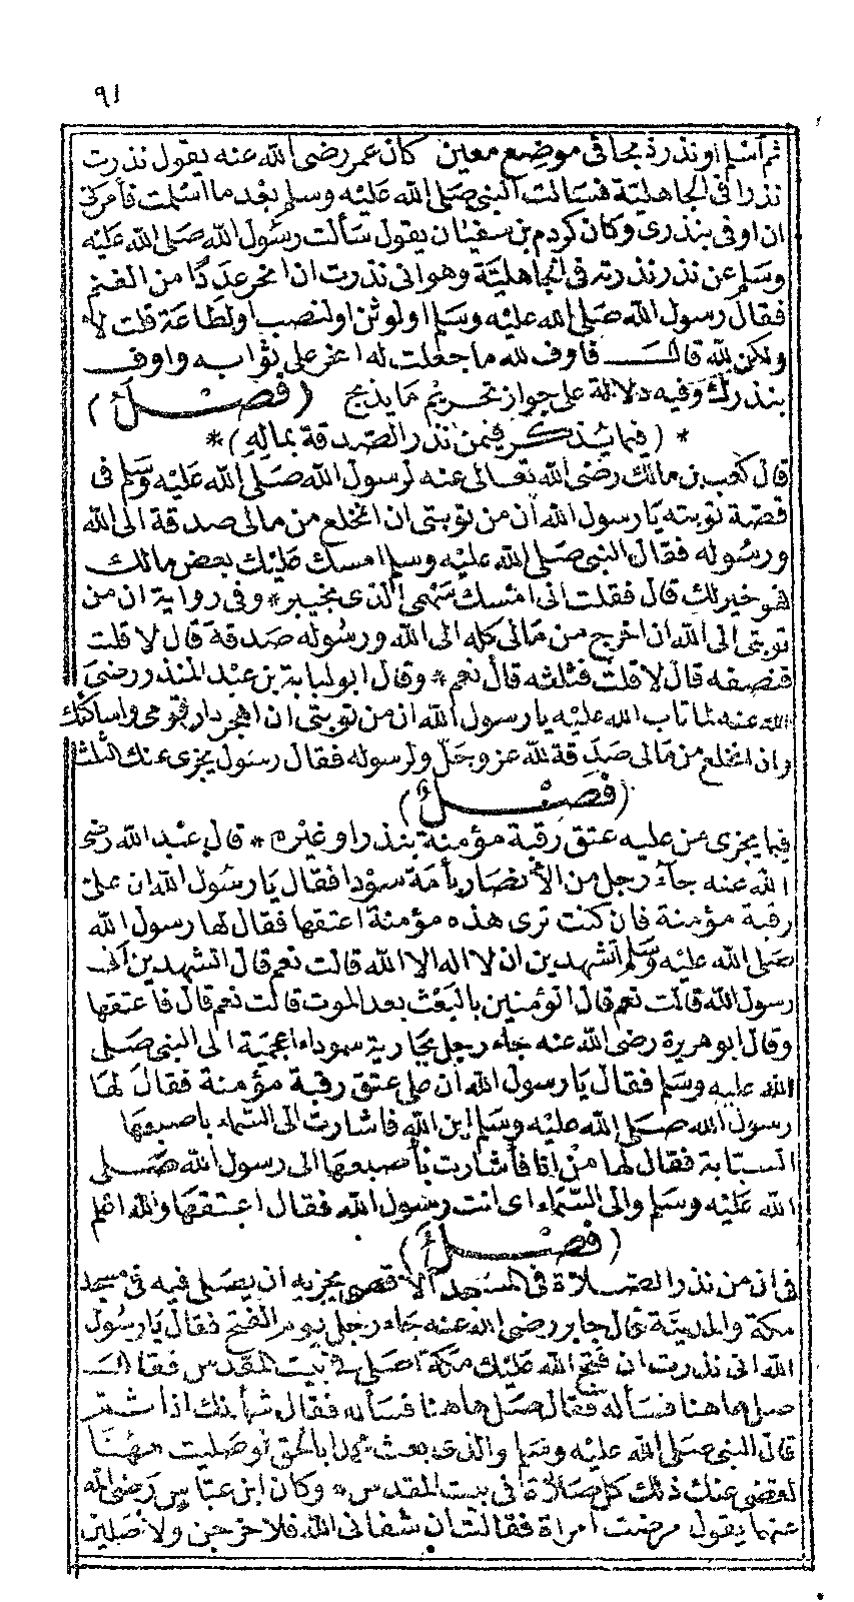 ٩١
ثم أسلم او نذر ذبحا فى موضع معين كان عمر رضى الله عنه يقول نذرت
نذرا فى الجاهلية فسألت النبى صلى الله عليه وسلم بعد ما اسلمت فأمرنى
ان اوفى بنذرى وكان كردم بن سفيان يقول سألت رسول الله صلى الله عليه
وسلم عن نذر نذرته فى الجاهلية وهو انى نذرت ان انحر عددا من الغنم
فقال رسول الله صلى الله عليه وسلم او لوثن او لنصب او لطاعة قلت لا
ولكن لله قال فاوف لله ما جعلت له انحر على بوابه واوف
بنذرك وفيه دلالة على جواز تحريم ما يذبح (فصل)
* (فيما يذكر فيمن نذر الصدقة بماله) *
قال كعب بن مالك رضى الله تعالى عنه لرسول الله صلى الله عليه وسلم فى
قصة توبته يا رسول الله ان من توبتى ان انخلع من مالى صدقة الى الله
ورسوله فقال النبى صلى الله عليه وسلم امسك عليك بعض مالك
فهو خير لك قال فقلت انى امسك سهمى الذى بخيبر * وفى رواية ان من
توبتى الى الله ان اخرج من مالى كله الى الله ورسوله صدقة قال لا قلت
فنصفه قال لا قلت فثلثه قال نعم * وقال ابو لبابة بن عبد المنذر رضى
الله عنه لما تاب الله عليه يا رسول الله ان من توبتى ان اهجر دار قومى واساكنك
وان انخلع من مالى صدقة لله عز وجل ولرسوله فقال رسول يجزى عنك الثلث
(فصل)
فيما يجزى من عليه عتق رقبة مؤمنة بنذر او غيره * قال عبد الله رضى
الله عنه جاء رجل من الأنصار بأمة سودا فقال يا رسول الله ان على
رقبة مؤمنة فان كنت ترى هذه مؤمنة اعتقها فقال لها رسول الله
صلى الله عليه وسلم اتشهدين ان لا اله الا الله قالت نعم قال اتشهدين انى
رسول الله قالت نعم قال اتؤمنين بالبعث بعد الموت قالت نعم قال فاعتقها
وقال ابو هريرة رضى الله عنه جاء رجل بجارية سوداء اعجمية الى النبى صلى
الله عليه وسلم فقال يا رسول الله ان على عتق رقبة مؤمنة فقال لها
رسول الله صلى الله عليه وسلم اين الله فاشارت الى السماء باصبعها
السبابة فقال لها من انا فأشارت بأصبعها الى رسول الله صلى
الله عليه وسلم والى السماء اى انت رسول الله فقال اعتقها والله اعلم
(فصل)
فى ان من نذر الصلاة فى المسجد الأقصى يجزيه ان يصلى فيه فى مسجد
مكة والمدينة قال جابر رضى الله عنه جاء رجل يوم الفتح فقال يا رسول
الله انى نذرت ان فتح الله عليك مكة اصلى فى بيت المقدس فقال
صل هاهنا فسأله فقال صل هاهنا فسأله فقال شأنك اذا ثم
قال النبى صلى الله عليه وسلم والذى بعث محمدا بالحق لو صليت ههنا
لقضى عنك ذلك كل صلاة فى بيت المقدس * وكان ابن عباس رضى الله
عنهما يقول مرضت امراة فقالت ان شفانى الله فلاخرجن ولأصلين